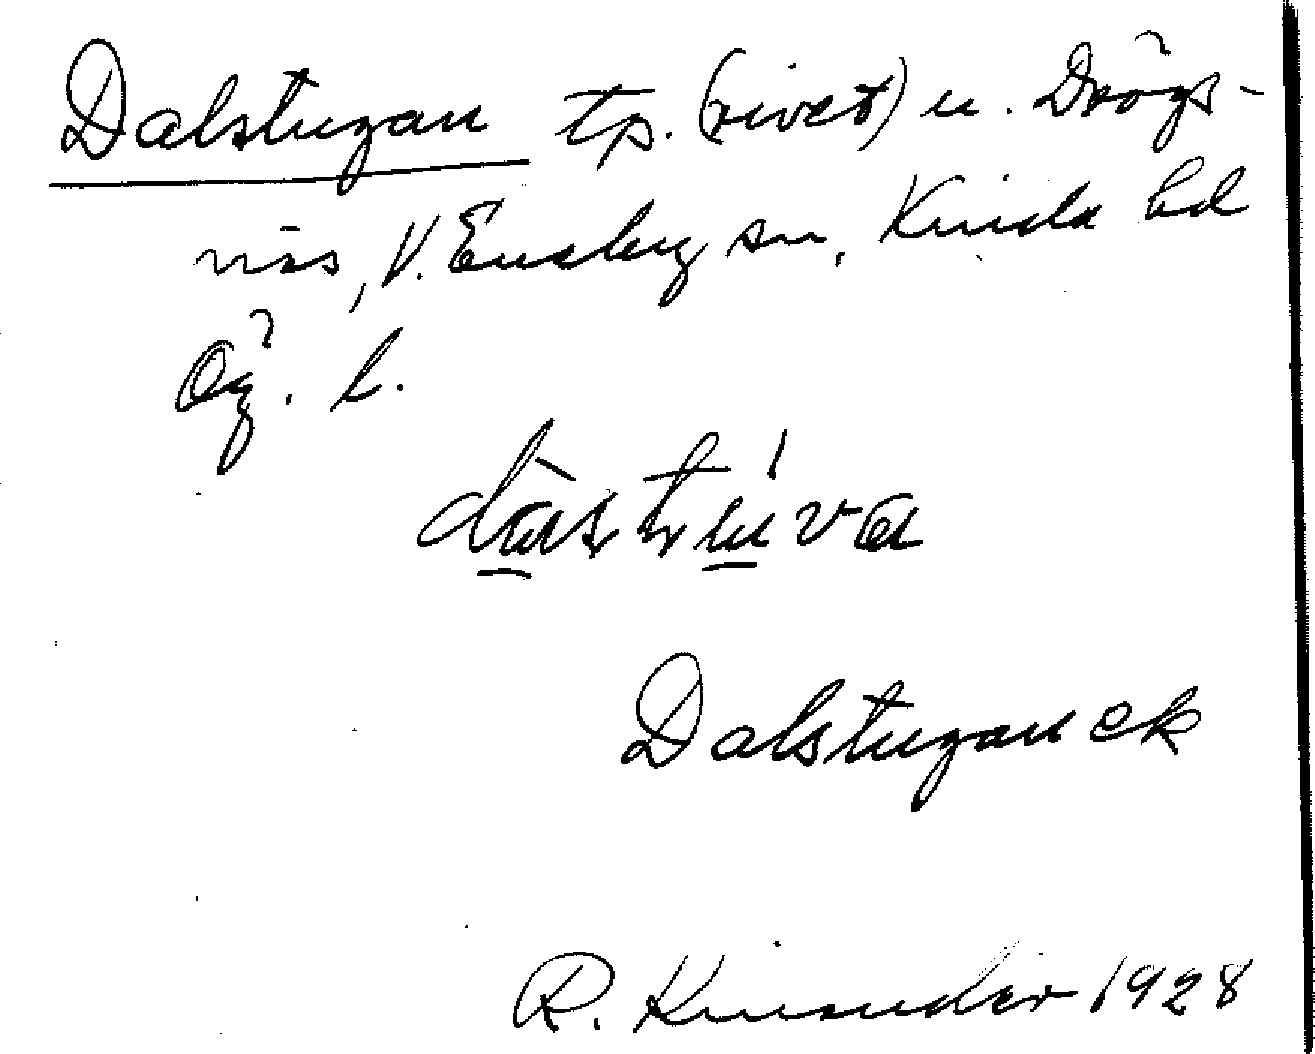 Dalstugan tp. (rivet) u. Drögs-
näs, V. Eneby sn, Kinda hd
Ög. l.
dàstúva
Dalstugan ek
R. Kinander 1928